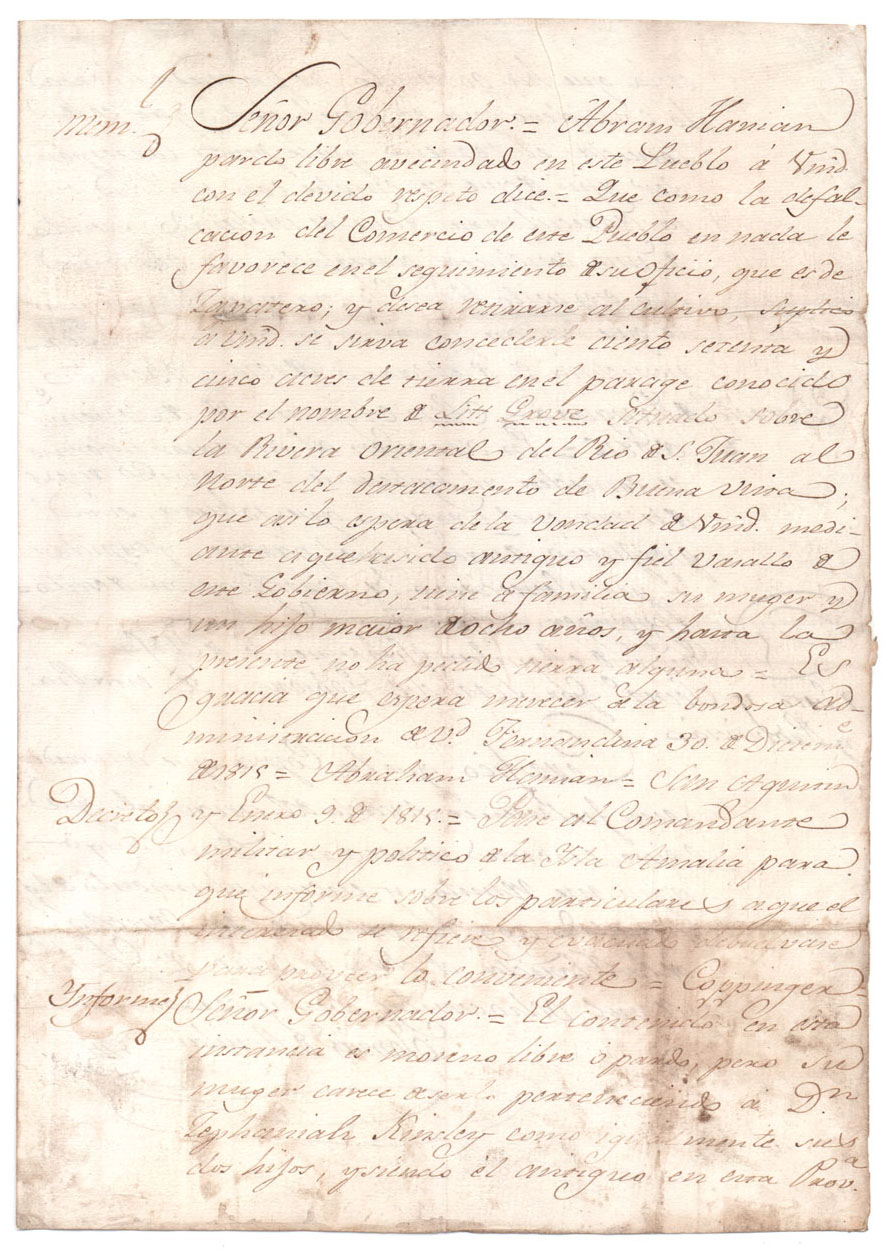 Mem.l Señor Gobernador.= Abram Hanian
pardo libre avecindado en este Pueblo á Vmd.
con el devido respeto dice.= Que como la defal-
cacion del Comercio de este Pueblo en nada le
favorece en el seguimiento de su Oficio, que es de
Zapatero; y desea retirarse al cultivo, suplico
a Vmd. se sirva concederle ciento setenta y
cinco acres de tierra en el parage conocido
por el nombre de Litt Grove situado sobre
la Rivera oriental del Rio de S. Juan al
Norte del destacamento de Buena vista;
que asi lo espera de la vondad de Vmd. medi-
ante a que ha sido antiguo y fiel vasallo de
este Gobierno, tiene de familia su muger y
un hijo maior de ocho años, y hasta la
presente no ha pedido tierra alguna = Es
gracia que espera merecer de la bondosa ad-
ministracion de V.d Fernandina 30. de Diciem.e
de 1815 = Abraham Hanian = San Agustin
Decreto} y Enero 9. de 1815.= Pase al Comandante
militar y politico de la Isla Amalia para
que informe sobre los particulares a que el
interesado se refiere y evacuado debuelvase
para proveer lo conveniente = Coppinger =
Informe} Señor Gobernador.= El contenido en esta
instancia es moreno libre ó pardo, pero su
muger carece de serlo perteneciendo á D.n
Zephaniah Kinsley como igualmente sus
dos hijos, y siendo el antiguo en esta Prov.a